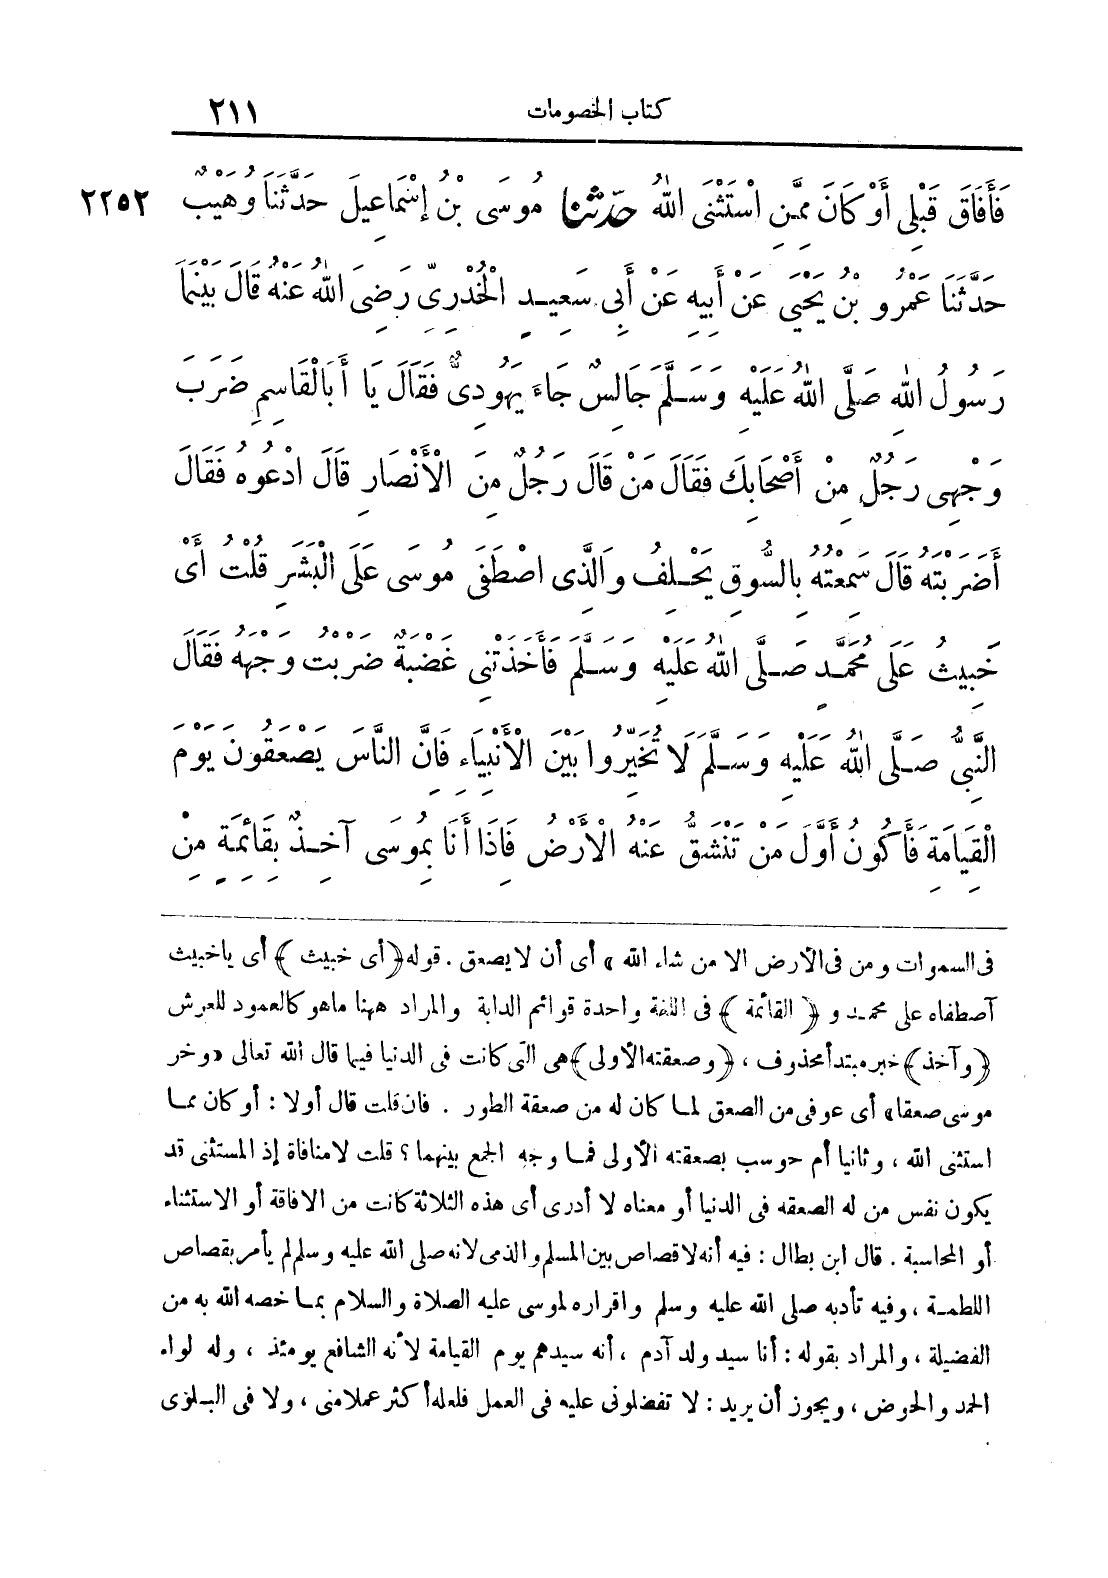 كتاب الخصومات ٢١١
فَأَفَاقَ قَبْلِى أَوْ كَانَ مِمَّنِ اسْتَثْنَى اللهُ حدّثنا مُوسَى بْنُ إِسْمَاعِيلَ حَدَّثَنَا وُهَيْبٌ ٢٢٥٢
حَدَّثَنَا عَمْرُو بْنُ يَحْيَى عَنْ أَبِيهِ عَنْ أَبِى سَعِيدٍ الْخُدْرِىِّ رَضِىَ اللهُ عَنْهُ قَالَ بَيْنَمَا
رَسُولُ اللهِ صَلَّى اللهُ عَلَيْهِ وَسَلَّمَ جَالِسٌ جَاءَ يَهُودِىٌّ فَقَالَ يَا أَبَا الْقَاسِمِ ضَرَبَ
وَجْهِى رَجُلٌ مِنْ أَصْحَابِكَ فَقَالَ مَنْ قَالَ رَجُلٌ مِنَ الْأَنْصَارِ قَالَ ادْعُوهُ فَقَالَ
أَضَرَبْتَهُ قَالَ سَمِعْتُهُ بِالسُّوقِ يَحْلِفُ وَالَّذِى اصْطَفَى مُوسَى عَلَى الْبَشَرِ قُلْتُ أَىْ
خَبِيثُ عَلَى مُحَمَّدٍ صَلَّى اللهُ عَلَيْهِ وَسَلَّمَ فَأَخَذَتْنِى غَضْبَةٌ ضَرَبْتُ وَجْهَهُ فَقَالَ
النَّبِىُّ صَلَّى اللهُ عَلَيْهِ وَسَلَّمَ لَا تُخَيِّرُوا بَيْنَ الْأَنْبِيَاءِ فَإِنَّ النَّاسَ يَصْعَقُونَ يَوْمَ
الْقِيَامَةِ فَأَكُونُ أَوَّلَ مَنْ تَنْشَقُّ عَنْهُ الْأَرْضُ فَإِذَا أَنَا بِمُوسَى آخِذٌ بِقَائِمَةٍ مِنْ
فى السموات ومن فى الأرض الا من شاء الله» أى أن لا يصعق . قوله ﴿أى خبيث﴾ أى ياخبيث
آصطفاه على محمد و ﴿القائمة﴾ فى اللغة واحدة قوائم الدابة والمراد ههنا ماهو كالعمود للعرش
﴿وآخذ﴾ خبر مبتدأ محذوف ، ﴿وصعقته الأولى﴾ هى التى كانت فى الدنيا فيما قال الله تعالى «وخر
موسى صعقا» أى عوفى من الصعق لما كان له من صعقة الطور . فان قلت قال أولا : أو كان مما
استثنى الله ، وثانيا أم حوسب بصعقته الأولى فما وجه الجمع بينهما ؟ قلت لامنافاة إذ المستثنى قد
يكون نفس من له الصعقه فى الدنيا أو معناه لا أدرى أى هذه الثلاثة كانت من الافاقة أو الاستثناء
أو المحاسبة . قال ابن بطال : فيه أنه لاقصاص بين المسلم والذمى لانه صلى الله عليه وسلم لم يأمر بقصاص
اللطمة ، وفيه تأدبه صلى الله عليه وسلم واقراره لموسى عليه الصلاة والسلام بما خصه الله به من
الفضيلة ، والمراد بقوله : أنا سيد ولد آدم ، أنه سيدهم يوم القيامة لأنه الشافع يومئذ ، وله لواء
الحمد والحوض ، ويجوز أن يريد : لا تفضلونى عليه فى العمل فلعله أكثر عملا منى ، ولا فى البلوى